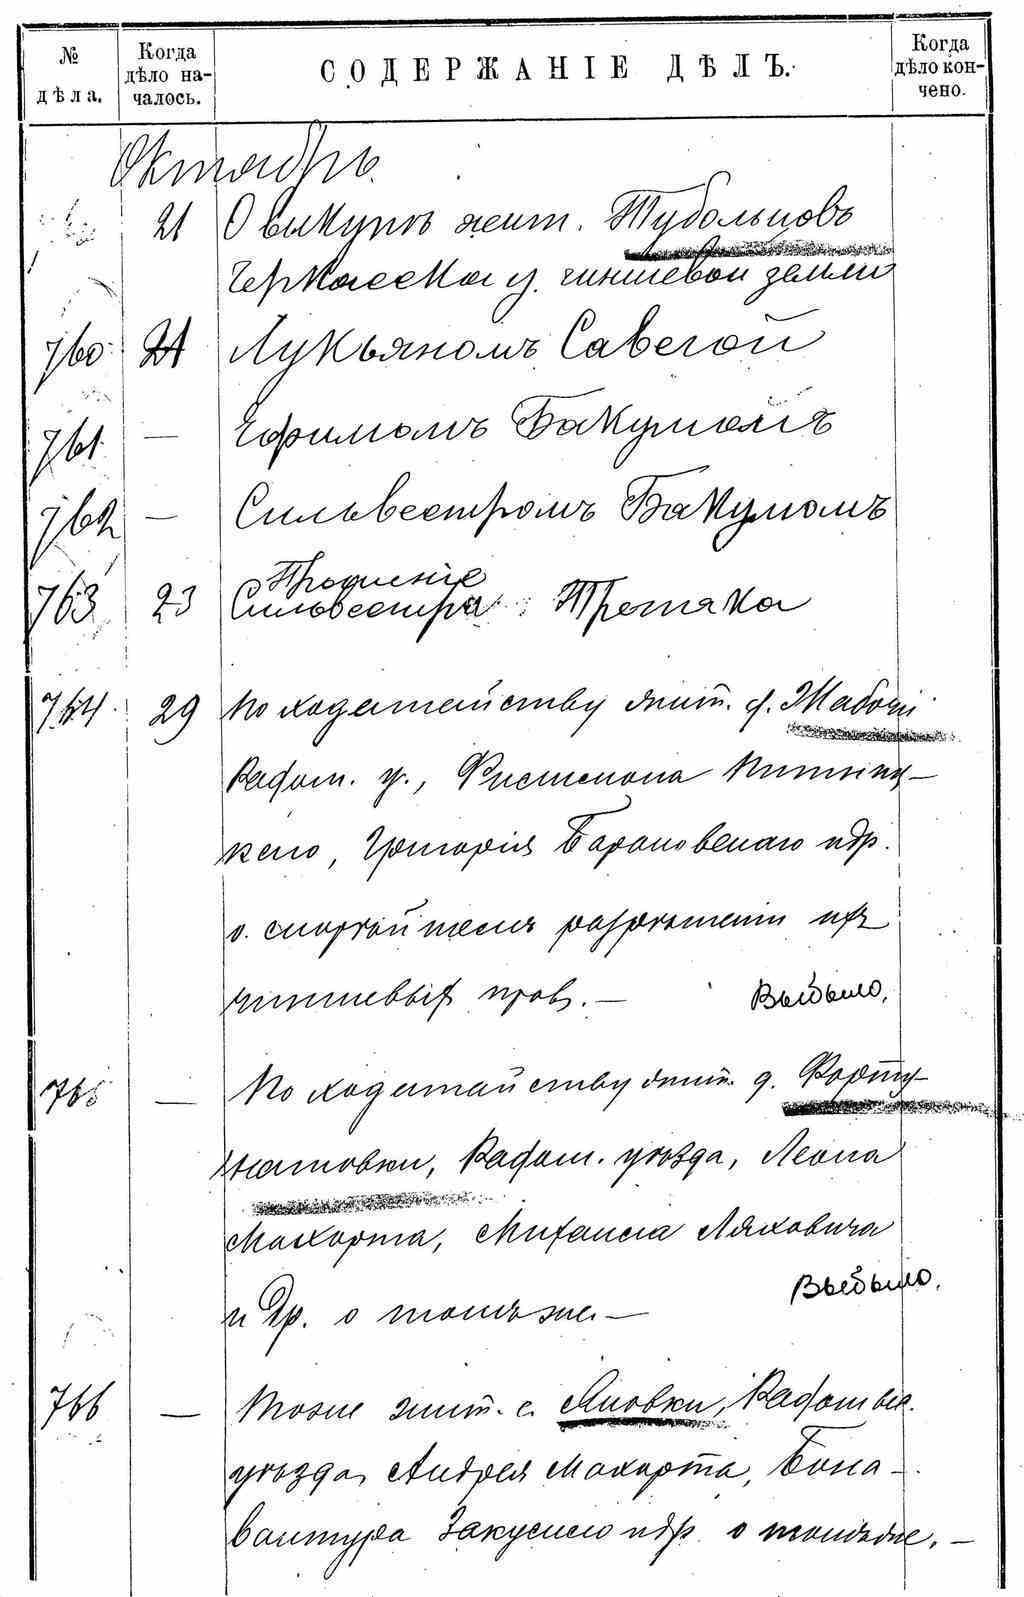 № дѣла.
Когда дѣло на-чалось.
СОДЕРЖАНІЕ ДѢЛЪ.
Когда дѣло кон-чено.
Октябрь.
21 О выкупѣ жит. Тубольцовъ
Черкасскаго у. чиншевой земли
760 21 Лукьяномъ Савегой
761 — Ефимомъ Бакумомъ
762 — Сильвестромъ Бакумомъ
Прошеніе
763 23 Сильвестра Третяка
764 29 По ходатайству жит. д. Жабочи
Радом. у.,
кого, Григорія Барановскаго и др.
о скорѣйшемъ разрѣшеніи ихъ
чиншевыхъ правъ. — Выбыло,
765 — По ходатайству жит. д. Форту-
натовки, Радом. уѣзда, Леона
Махорта, Михаила Ляховича
Выбыло.
и др. о томъ же. —
766 — Тоже жит. с. Яновки, Радомыс.
уѣзда, Андрея Махорта, Бона-
вентура Закусило и др. о томъ же. —